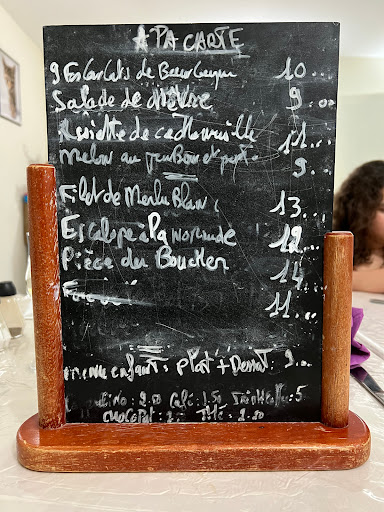 A LA CARTE
9 Escargots de Bourgogne 10...
Salade de chèvre 9.00
Assiette de 11...
Melon au jambon et 9...
Filet de Merlu Blanc 13...
Escalope à la normande 12...
Pièce du Boucher 14...
11...
menu enfant: plat + Dessert: 9...
2.00 Café: 1.50 5.
chocolat: 2. Thé: 2.50